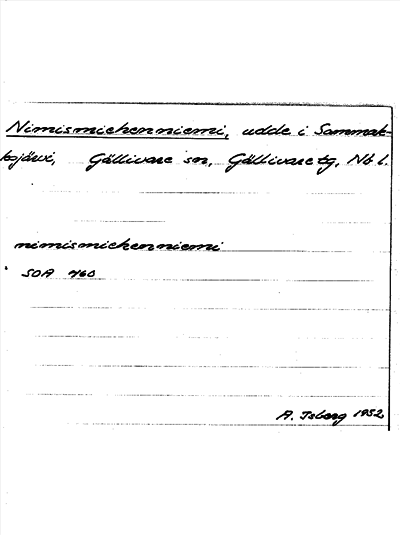 Nimismiehenniemi, udde i Sammak-
kojärvi, Gällivare sn, Gällivare tg, Nb l.
nimismiehenniemi
SOA 460
A. Isberg 1952